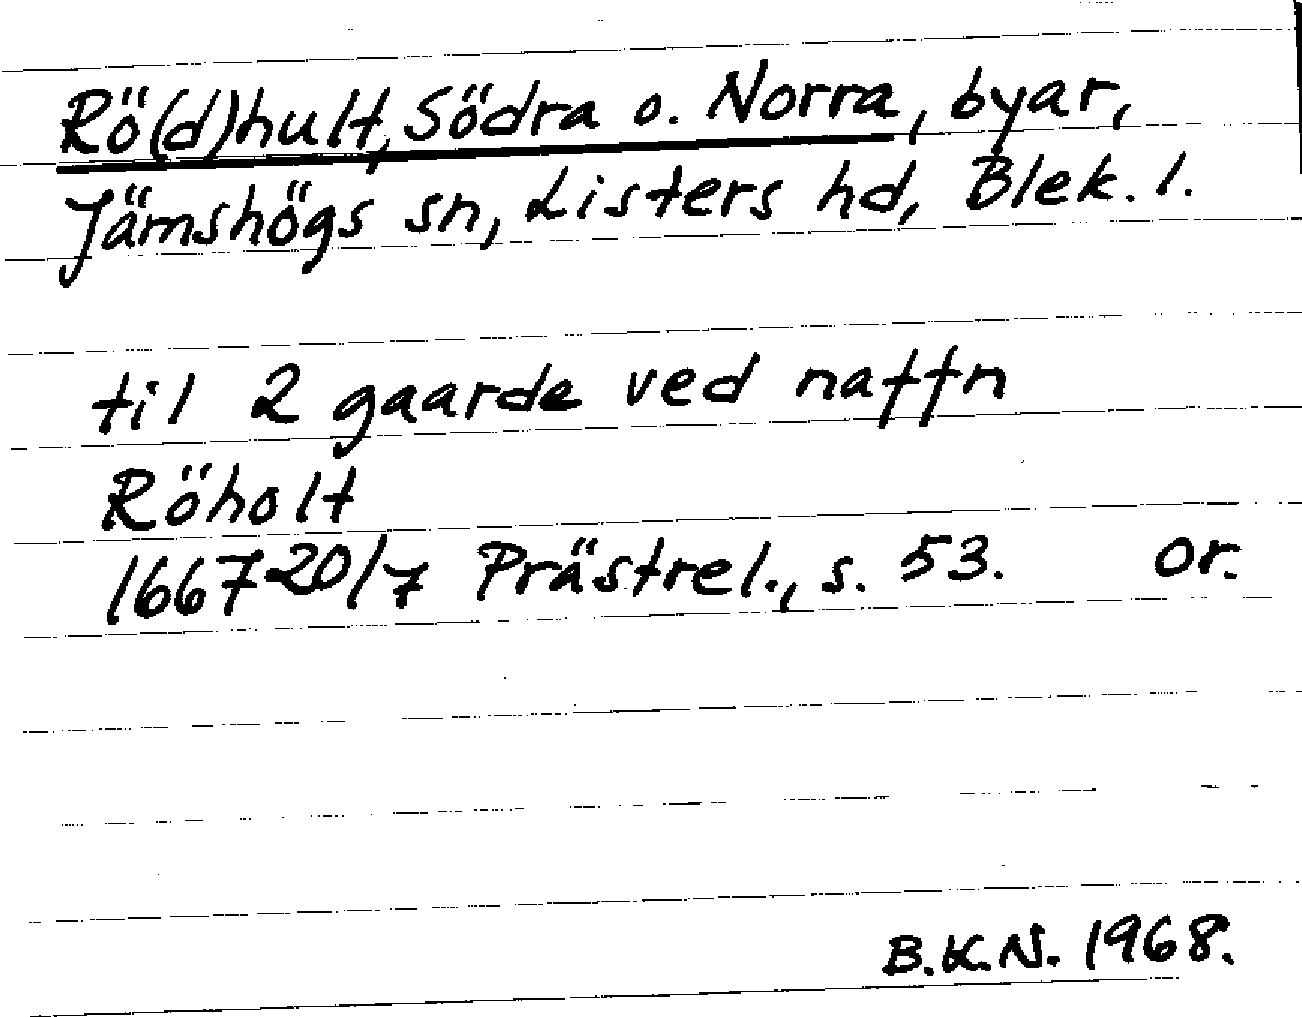 Rö(d)hult, Södra o. Norra, byar,
Jämshögs sn, Listers hd, Blek. l.
til 2 gaarde ved naffn
Röholt
1667 20/7 Prästrel., s. 53. or.
B.K.N. 1968.